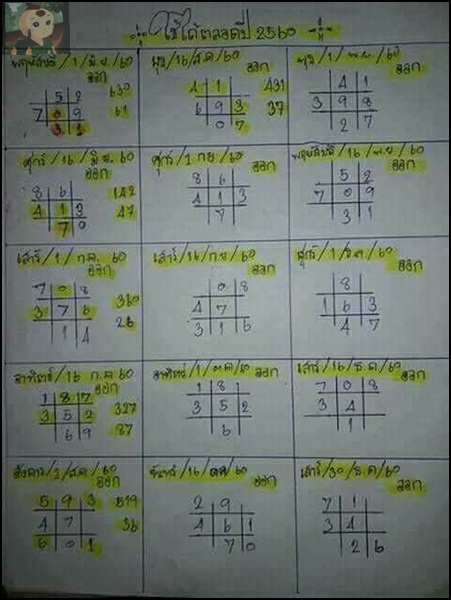 ใช้ได้ตลอดปี 2560
พฤหัสบดี/1/มิ.ย/60
ออก
5 2 630
7 0 9 61
3 1
พุธ/16/ส.ค/60
ออก
4 1 431
6 9 3 37
0 7
พุธ/1/พ.ย/60
ออก
4 1
3 9 8
2 7
ศุกร์/16/มิ.ย/60
ออก
8 6 142
4 1 3 47
7 0
ศุกร์/1 ก.ย/60
ออก
8 6
4 1 3
7
พฤหัสบดี/16/พ.ย/60
ออก
5 2
7 0 9
3 1
เสาร์/1/ก.ค./60
ออก
7 0 8
3 7 6 360
1 4 26
เสาร์/16/ก.ย/60
ออก
0 8
4 7
3 1 6
ศุกร์/1/ธ.ค/60
ออก
8
1 6 3
4 7
อาทิตย์/16 ก.ค 60
ออก
1 8 7
3 5 2 327
6 9 87
อาทิตย์/1/ต.ค/60
ออก
1 8
3 5 2
6
เสาร์/16/ธ.ค/60
ออก
7 0 8
3 4
1
อังคาร/1/ส.ค/60
ออก
5 9 3 519
4 7 36
6 0 1
จันทร์/16/ต.ค/60
ออก
2 9
4 6 1
7 0
เสาร์/30/ธ.ค/60
ออก
7 1
3 4
2 6